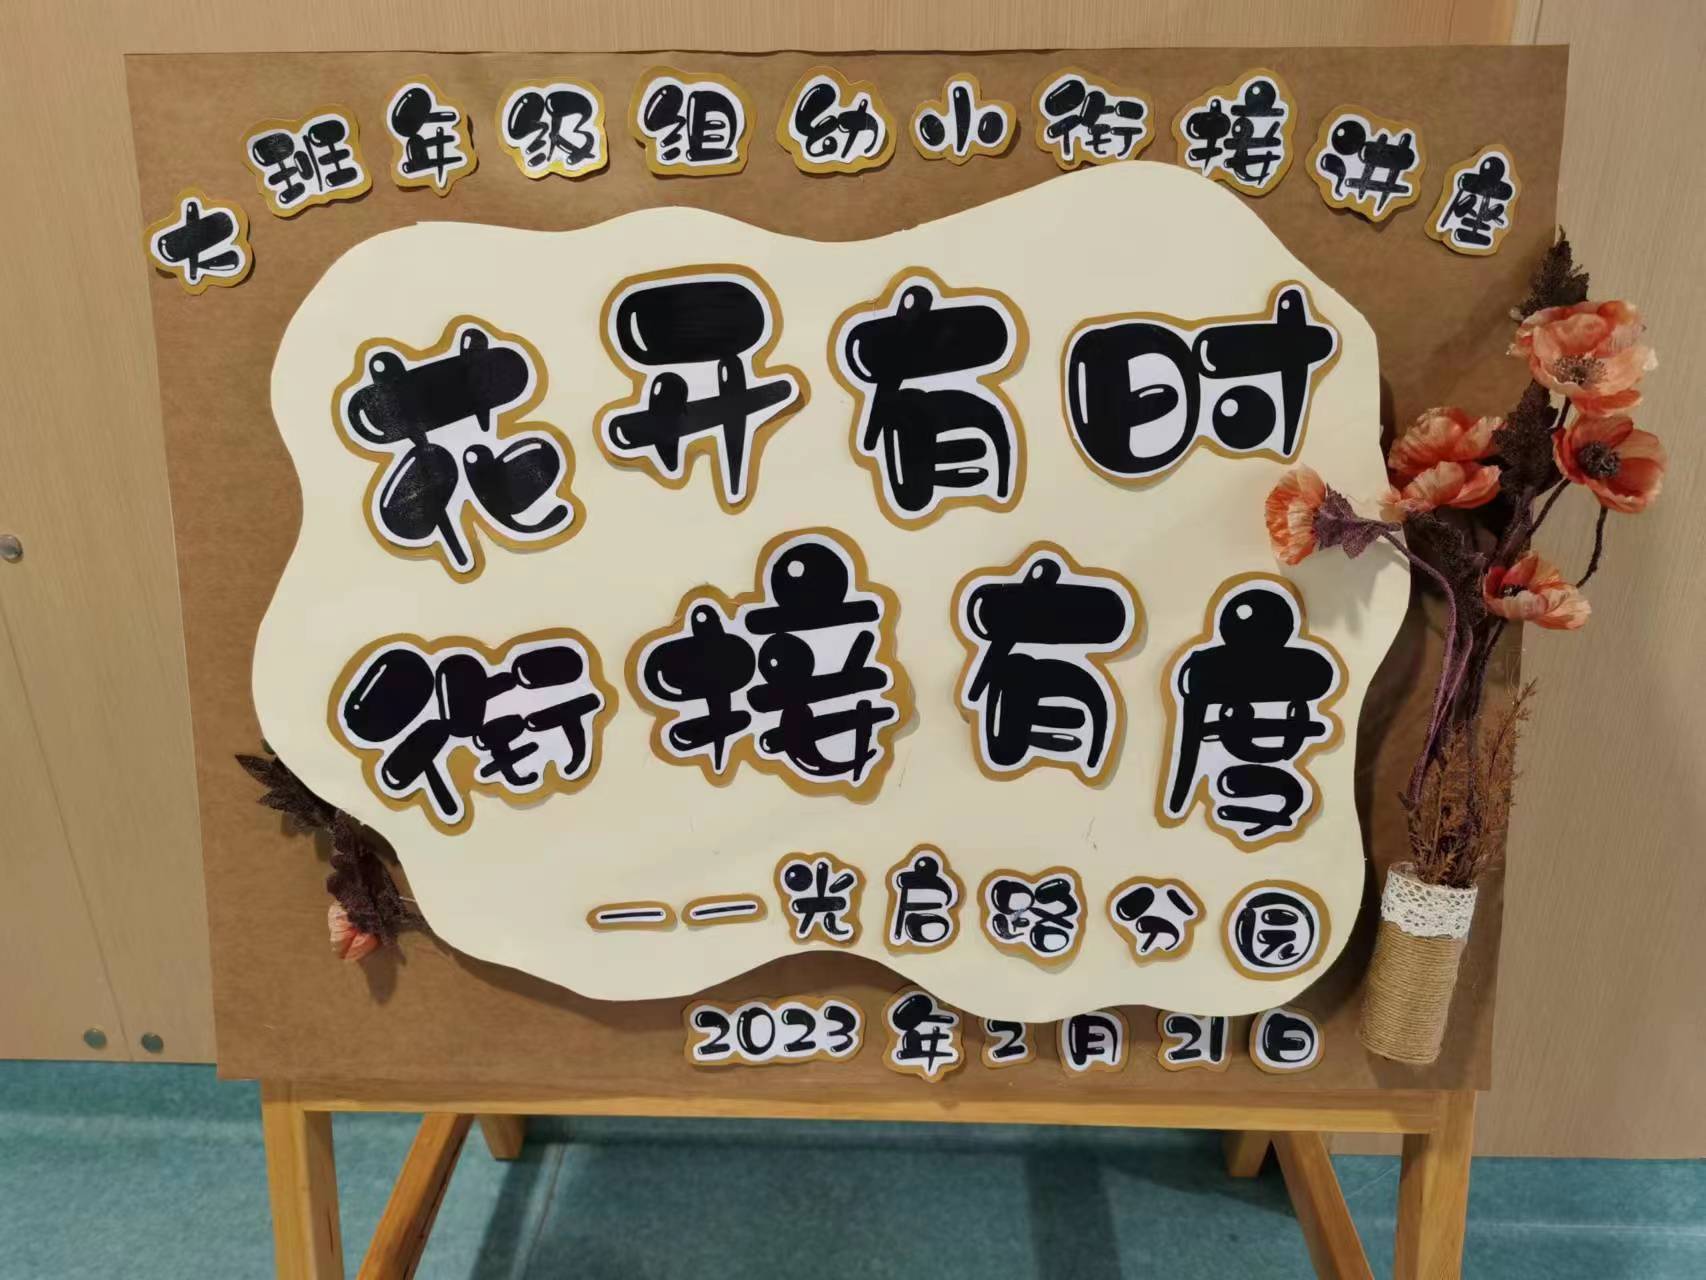 大班年级组幼小衔接讲座
花开有时
衔接有度
——光启路分园
2023年2月21日